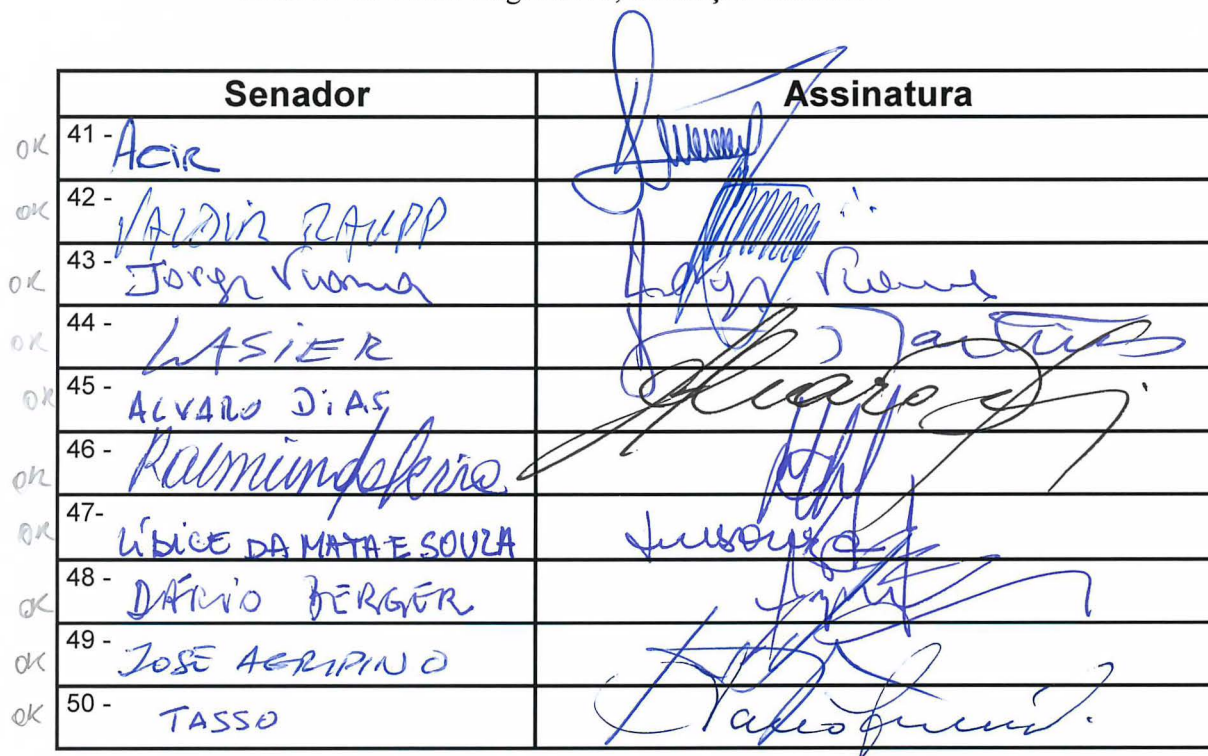 Senador Assinatura
OK 41 - ACIR
OK 42 - VALDIR RAUPP
OK 43 - Jorge Viana Jorge Viana
OK 44 - LASIER Martins
OK 45 - ALVARO DIAS Alvaro Dias
OK 46 - Raimundo Lira
OK 47- LÍDICE DA MATA E SOUZA
OK 48 - DÁRIO BERGER
OK 49 - JOSÉ AGRIPINO
OK 50 - TASSO